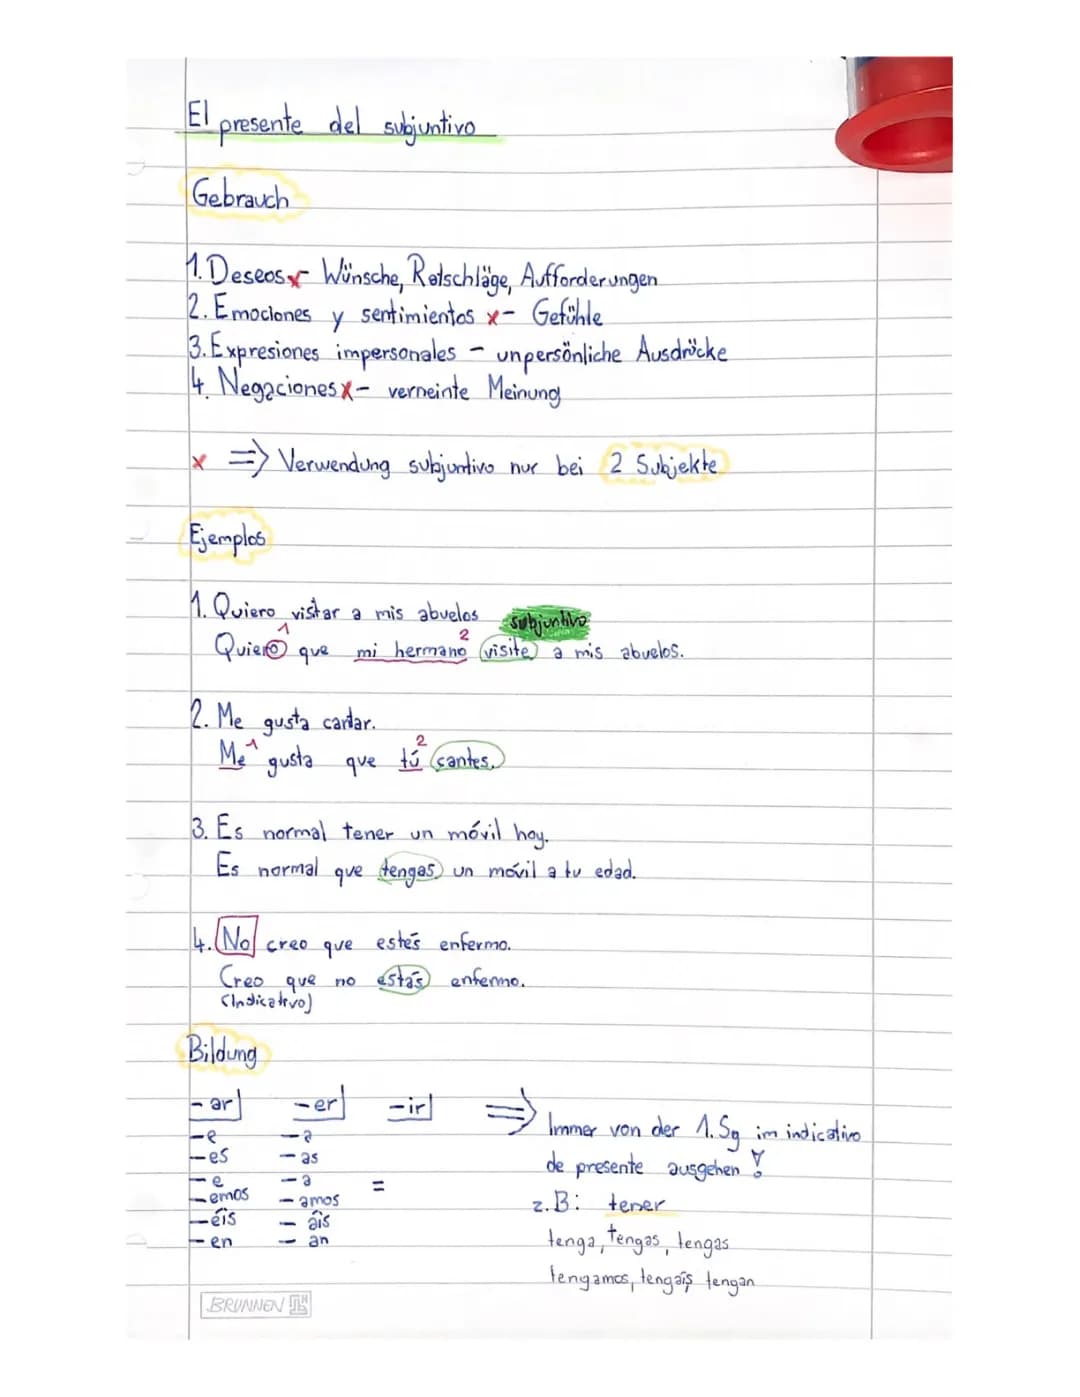 El presente del subjuntivo
Gebrauch
1. Deseos x- Wünsche, Ratschläge, Aufforderungen
2. Emociones y sentimientos x- Gefühle
3. Expresiones impersonales - unpersönliche Ausdrücke
4. Negaciones x- verneinte Meinung
x => Verwendung subjuntivo nur bei 2 Subjekte
Ejemplos
1. Quiero visitar a mis abuelos subjuntivo
1 2
Quiero que mi hermano visite a mis abuelos.
2. Me gusta cantar.
1 2
Me gusta que tú cantes.
3. Es normal tener un móvil hoy.
Es normal que tengas un móvil a tu edad.
4. No creo que estés enfermo.
Creo que no estás enfermo.
(Indicativo)
Bildung
-ar -er -ir => Immer von der 1. Sg im indicativo
-e -a de presente ausgehen!
-es -as
-e -a = z.B: tener
-emos -amos
-éis -áis tenga, tengas, tengas
-en -an
tengamos, tengáis, tengan
BRUNNEN